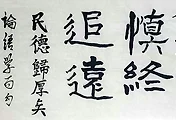 慎終
追遠
民德歸厚矣
論語學而句